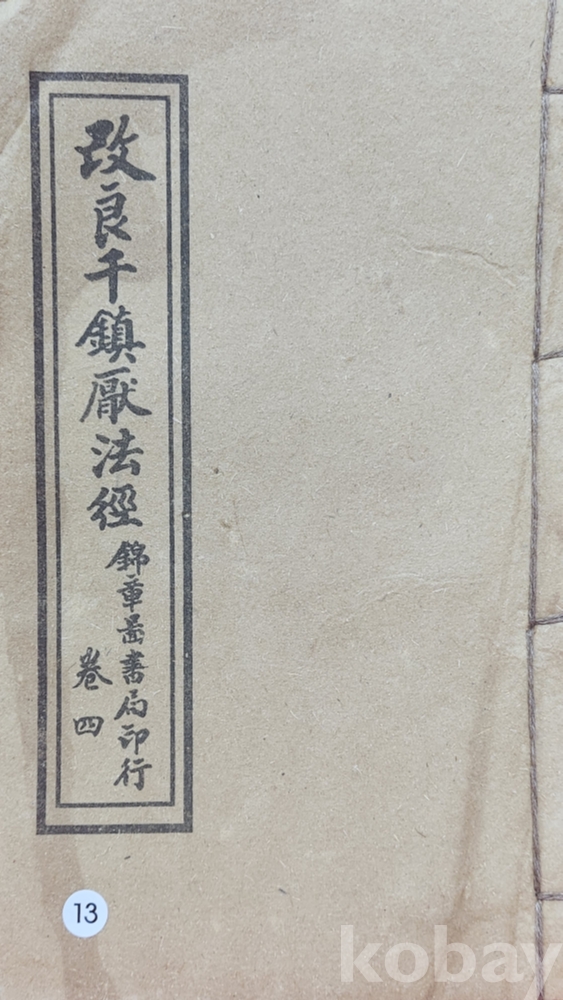 改良千鎮厭法經
錦章啚書局印行
卷四
13
kobay